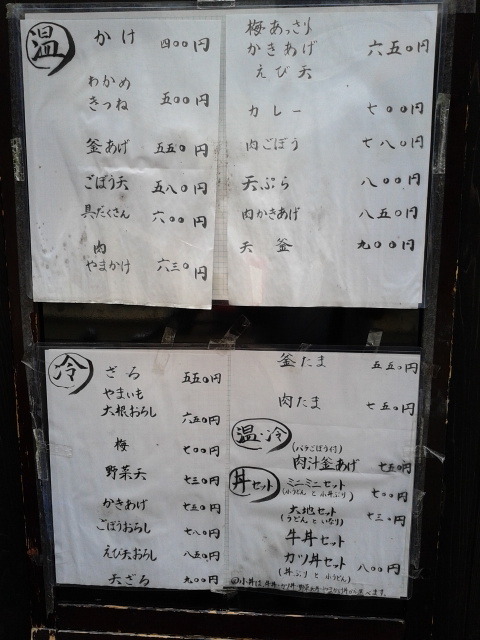 温
かけ 四〇〇円
わかめ
きつね 五〇〇円
釜あげ 五五〇円
ごぼう天 五八〇円
具だくさん 六〇〇円
肉
やまかけ 六三〇円
梅あっさり
かきあげ 六五〇円
えび天
カレー 七〇〇円
肉ごぼう 七八〇円
天ぷら 八〇〇円
肉かきあげ 八五〇円
天釜 九〇〇円
冷
ざる 五五〇円
やまいも
大根おろし 六五〇円
梅 七〇〇円
野菜天 七三〇円
かきあげ 七五〇円
ごぼうおろし 七八〇円
えび天おろし 八五〇円
天ざる 九〇〇円
釜たま 五五〇円
肉たま 七五〇円
温・冷
(バラごぼう付)
肉汁釜あげ 七五〇円
丼セット
ミニミニセット 七〇〇円
(小うどんと小丼ぶり)
大地セット 七三〇円
(うどんといなり)
牛丼セット
カツ丼セット 八〇〇円
(丼ぶりと小うどん)